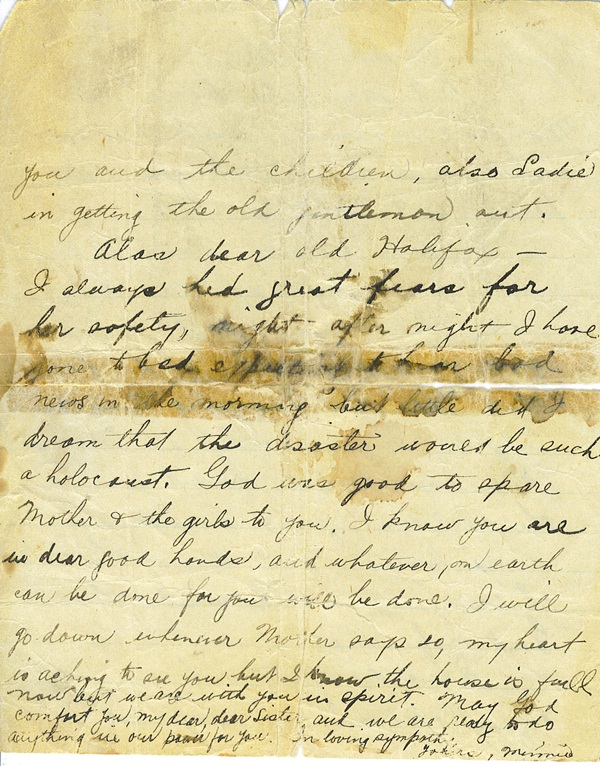 you and the children, also Sadie
in getting the old gentlemon out.
Alas dear old Halifax —
I always had great fears for
her safety, night after night I have
gone to bed expecting to hear bad
news in the morning but little did I
dream that the disaster would be such
a holocaust. God was good to spare
Mother & the girls to you. I know you are
in dear good hands, and whatever on earth
can be done for you will be done. I will
go down whenever Mother says so, my heart
is aching to see you but I know the house is full
now but we are with you in spirit. May God
comfort you, my dear, dear Sister, and we are ready to do
anything in our power for you. In loving sympathy.
Yours, Minnie